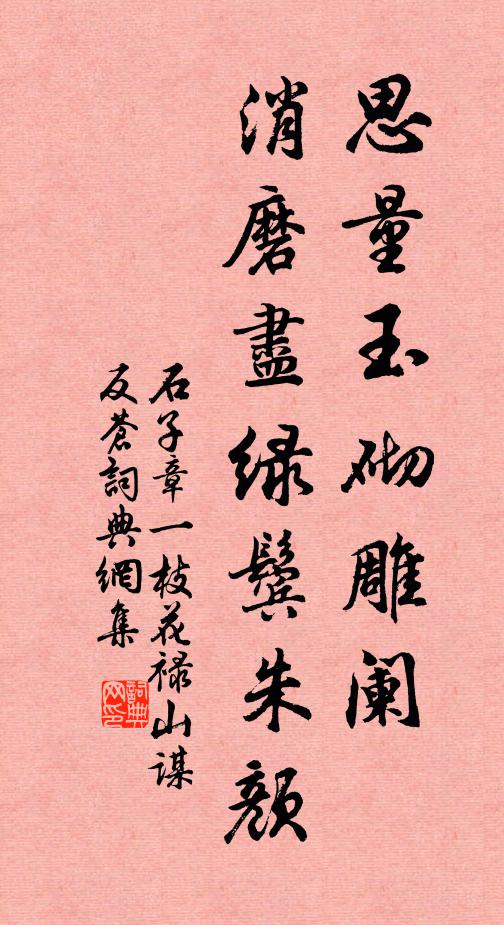 思量玉砌雕阑
消磨盡绿鬓朱颜
石子章一枝花禄山谋
反蒼詞典網集
詞典
网印